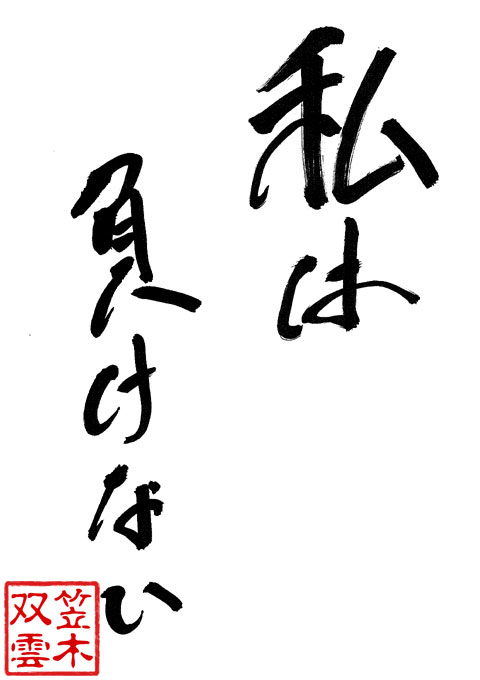 私は
負けない
笠木
双雲